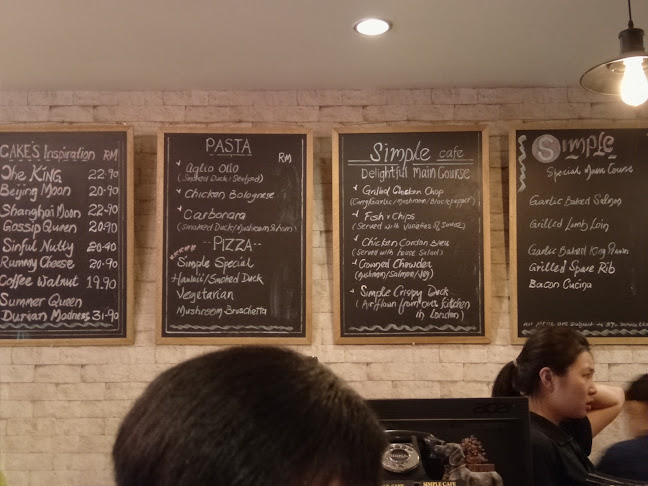 CAKE'S Inspiration RM
The KING 22.90
Beijing Moon 20.90
Shanghai Moon 22.90
Gossip Queen 20.90
Sinful Nutty 20.90
Rummy Cheese 20.90
Coffee Walnut 19.90
Summer Queen
Durian Madness 31.90
PASTA
RM
Aglio Olio
(Smoked Duck/Seafood)
Chicken Bolognese
Carbonara
(Smoked Duck/Mushroom & Ham)
--PIZZA--
Simple Special
Hawaii/Smoked Duck
Vegetarian
Mushroom Bruschetta
Simple cafe
Delightful Main Course
Grilled Chicken Chop
(Garlic/Mushroom/Blackpepper)
Fish n Chips
(Served with Varieties of Sauce)
Chicken Cordon Bleu
(Served with house Salad)
Crowned Chowder
(Mushroom/Salmon/Veg)
Simple Crispy Duck
(Air flown from our kitchen
in London)
Simple
Special Main Course
Garlic Baked Salmon
Grilled Lamb Loin
Garlic Baked King Prawn
Grilled Spare Rib
Bacon Cucina
acer
SIMPLE CAFE